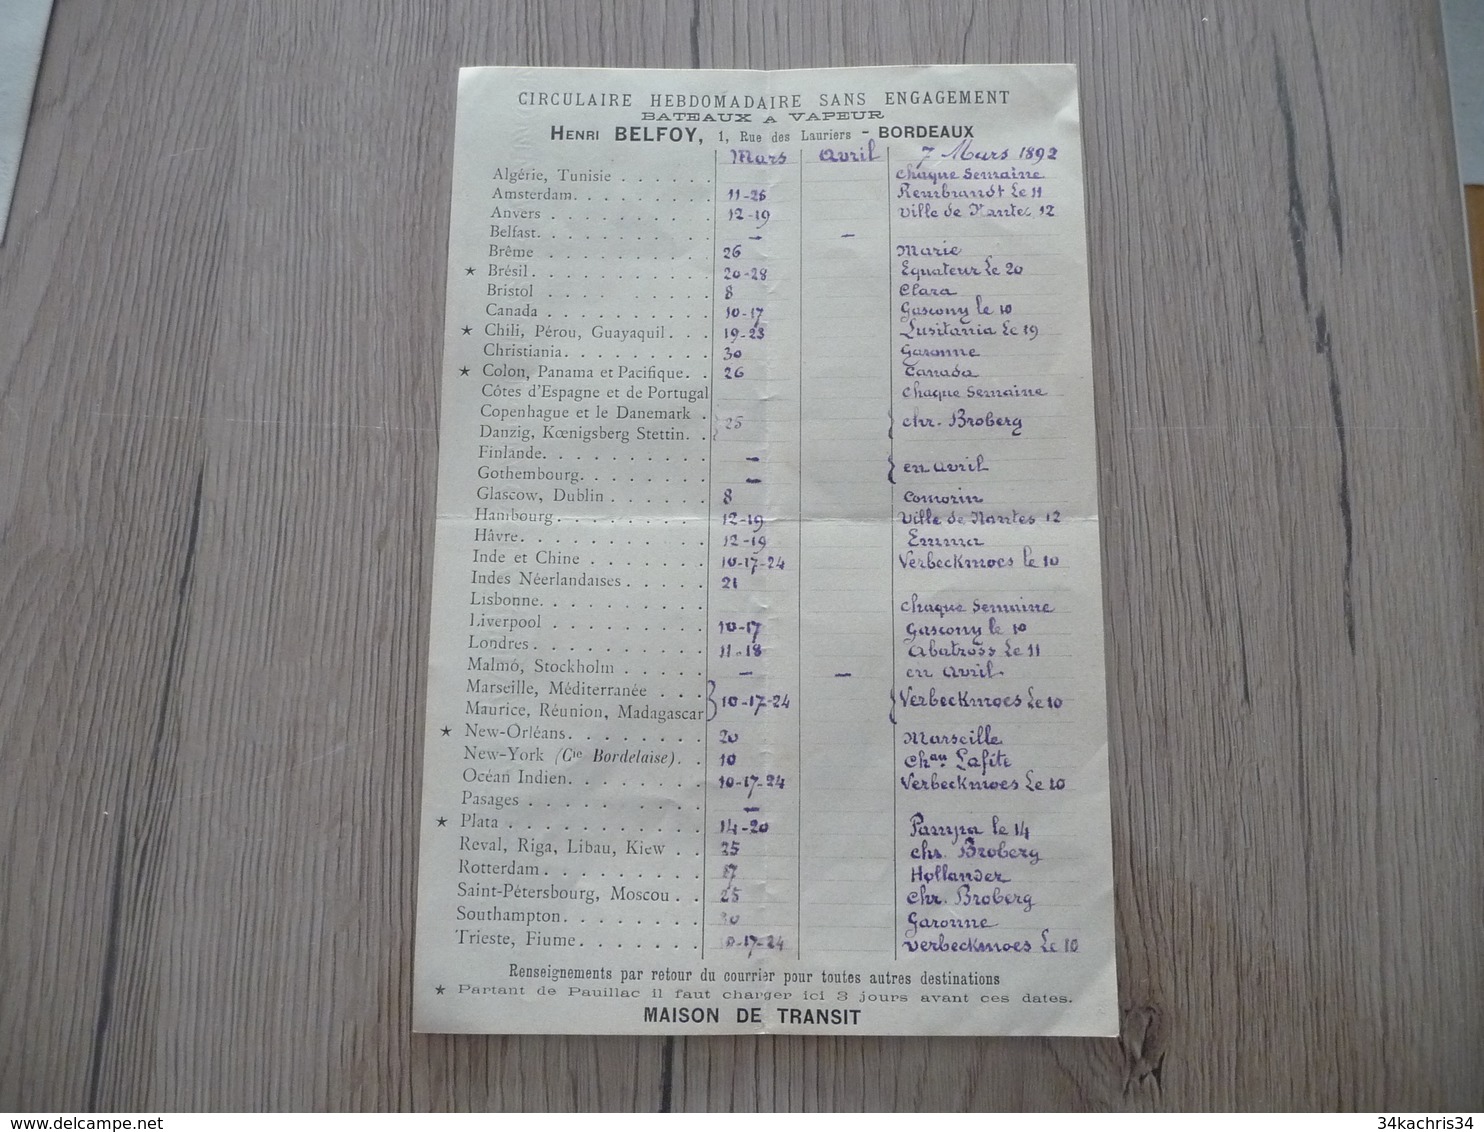 CIRCULAIRE HEBDOMADAIRE SANS ENGAGEMENT
BATEAUX A VAPEUR
HENRI BELFOY, 1, Rue des Lauriers - BORDEAUX
Mars Avril 7 Mars 1892
Algérie, Tunisie . . . . . . chaque semaine
Amsterdam. . . . . . . . 11-26 Rembrandt le 11
Anvers . . . . . . . . . 12-19 Ville de Nantes 12
Belfast. . . . . . . . . — —
Brême . . . . . . . . . 26 Marie
★ Brésil. . . . . . . . . . 20-28 Equateur le 20
Bristol . . . . . . . . 8 Clara
Canada . . . . . . . . . 10-17 Gascony le 10
★ Chili, Pérou, Guayaquil. . . 19-23 Lusitania le 19
Christiania. . . . . . . . 30 Garonne
★ Colon, Panama et Pacifique. . 26 Canada
Côtes d'Espagne et de Portugal chaque semaine
Copenhague et le Danemark .
Danzig, Kœnigsberg Stettin. . } 25 { chr. Broberg
Finlande. . . . . . . . . —
Gothembourg. . . . . . . — { en avril
Glascow, Dublin . . . . . 8 Comorin
Hambourg. . . . . . . . 12-19 Ville de Nantes 12
Hâvre. . . . . . . . . . 12-19 Emma
Inde et Chine . . . . . . 10-17-24 Verbeckmoes le 10
Indes Néerlandaises . . . . . 21
Lisbonne. . . . . . . . . chaque semaine
Liverpool . . . . . . . . 10-17 Gascony le 10
Londres . . . . . . . . . 11-18 Abatross le 11
Malmó, Stockholm . . . . . — — en avril
Marseille, Méditerranée . . .
Maurice, Réunion, Madagascar } 10-17-24 { Verbeckmoes le 10
★ New-Orléans. . . . . . . 20 Marseille
New-York (Cie Bordelaise). . 10 Chau Lafite
Océan Indien. . . . . . . 10-17-24 Verbeckmoes le 10
Pasages . . . . . . . . . —
★ Plata . . . . . . . . . . 14-20 Pampa le 14
Reval, Riga, Libau, Kiew . . 25 chr. Broberg
Rotterdam. . . . . . . . Hollander
Saint-Pétersbourg, Moscou . . 25 chr. Broberg
Southampton. . . . . . . 30 Garonne
Trieste, Fiume. . . . . . . 10-17-24 verbeckmoes le 10
Renseignements par retour du courrier pour toutes autres destinations
★ Partant de Pauillac il faut charger ici 3 jours avant ces dates.
MAISON DE TRANSIT
delcampe.net
34kachris34